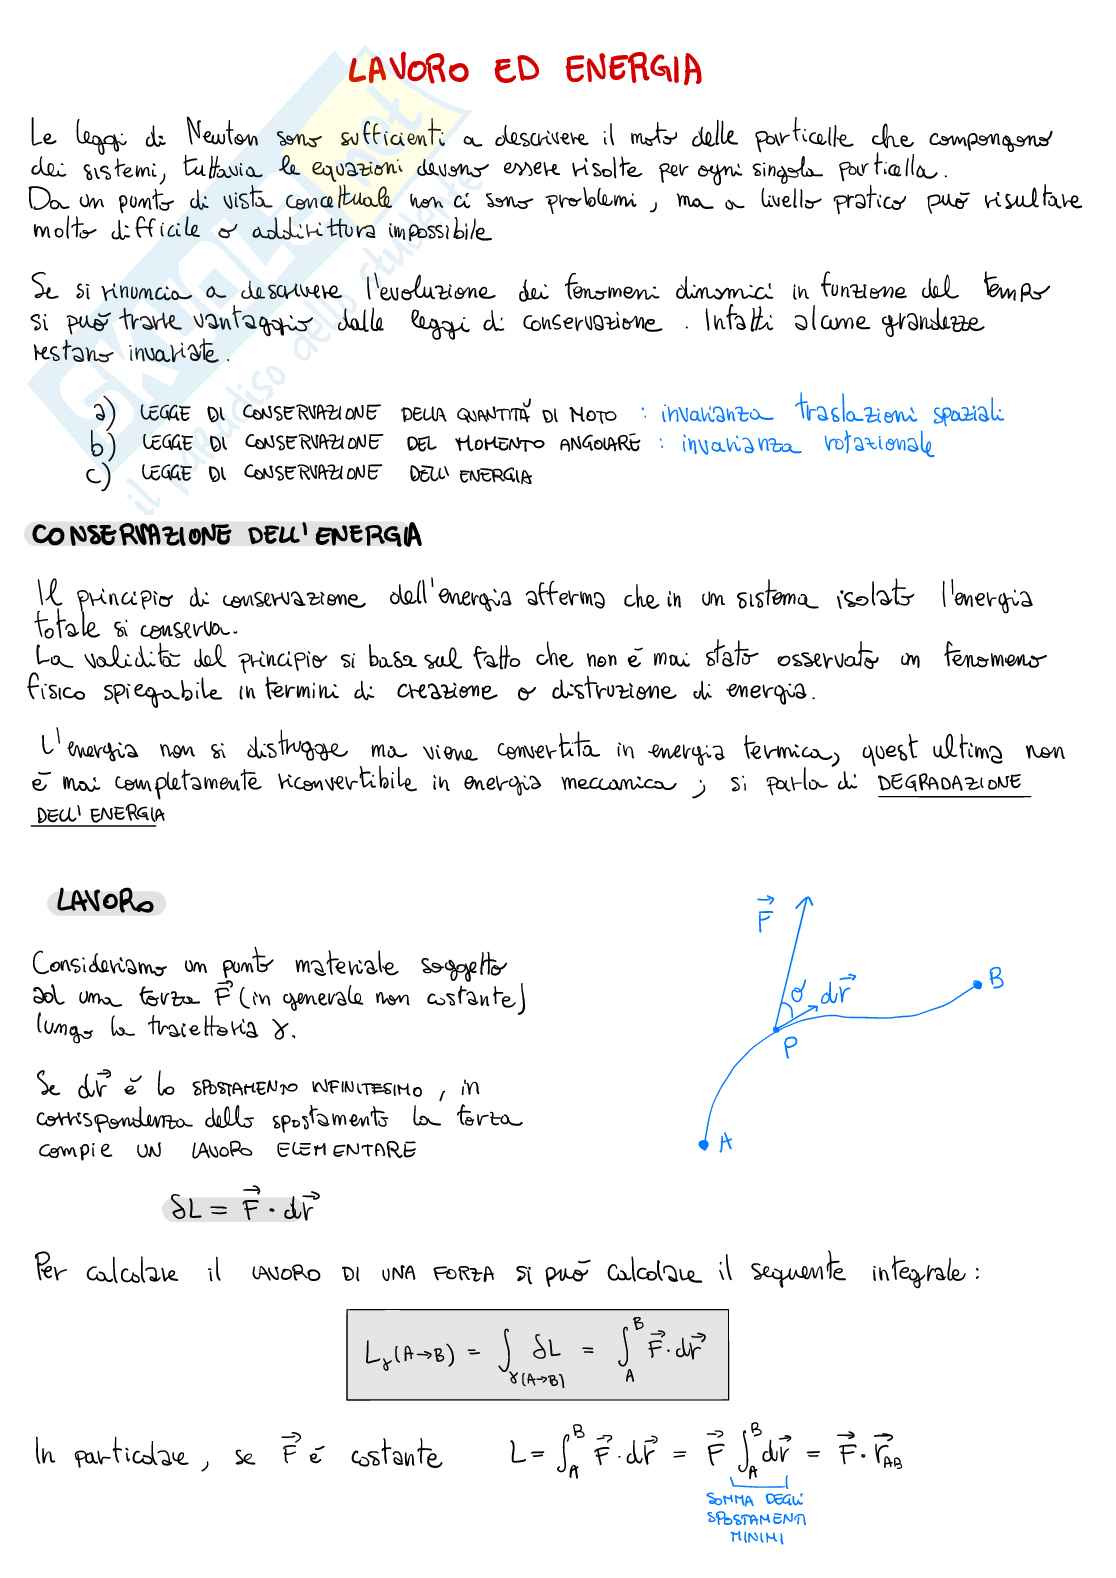 LAVORO ED ENERGIA
Le leggi di Newton sono sufficienti a descrivere il moto delle particelle che compongono
dei sistemi, tuttavia le equazioni devono essere risolte per ogni singola particella.
Da un punto di vista concettuale non ci sono problemi, ma a livello pratico può risultare
molto difficile o addirittura impossibile
Se si rinuncia a descrivere l'evoluzione dei fenomeni dinamici in funzione del tempo
si può trarre vantaggio dalle leggi di conservazione. Infatti alcune grandezze
restano invariate.
a) LEGGE DI CONSERVAZIONE DELLA QUANTITÀ DI MOTO : invarianza traslazioni spaziali
b) LEGGE DI CONSERVAZIONE DEL MOMENTO ANGOLARE : invarianza rotazionale
c) LEGGE DI CONSERVAZIONE DELL'ENERGIA
SKUOLA.net
il paradiso dello studente
CONSERVAZIONE DELL'ENERGIA
Il principio di conservazione dell'energia afferma che in un sistema isolato l'energia
totale si conserva.
La validità del principio si basa sul fatto che non è mai stato osservato un fenomeno
fisico spiegabile in termini di creazione o distruzione di energia.
L'energia non si distrugge ma viene convertita in energia termica, quest'ultima non
è mai completamente riconvertibile in energia meccanica ; si parla di DEGRADAZIONE
DELL'ENERGIA
LAVORO
Consideriamo un punto materiale soggetto
ad una forza F⃗ (in generale non costante)
lungo la traiettoria γ.
Se dr⃗ è lo SPOSTAMENTO INFINITESIMO, in
corrispondenza dello spostamento la forza
compie UN LAVORO ELEMENTARE
F⃗
θ
dr⃗
B
P
A
δL = F⃗ · dr⃗
Per calcolare il LAVORO DI UNA FORZA si può calcolare il seguente integrale :
L_γ(A→B) = ∫_γ(A→B) δL = ∫_A^B F⃗ · dr⃗
In particolare, se F⃗ è costante L = ∫_A^B F⃗ · dr⃗ = F⃗ ∫_A^B dr⃗ = F⃗ · r⃗_AB
SOMMA DEGLI
SPOSTAMENTI
MINIMI